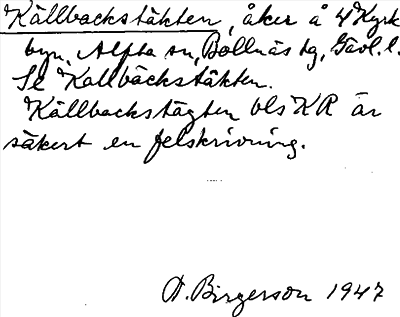 Källbackstäkten, åker å 4 Kyrk
byn, Alfta sn, Bollnäs tg, Gävl. l.
Se Kallbäckstäkten.
Källbackstägten bls KR är
säkert en felskrivning.
D. Birgerson 1947